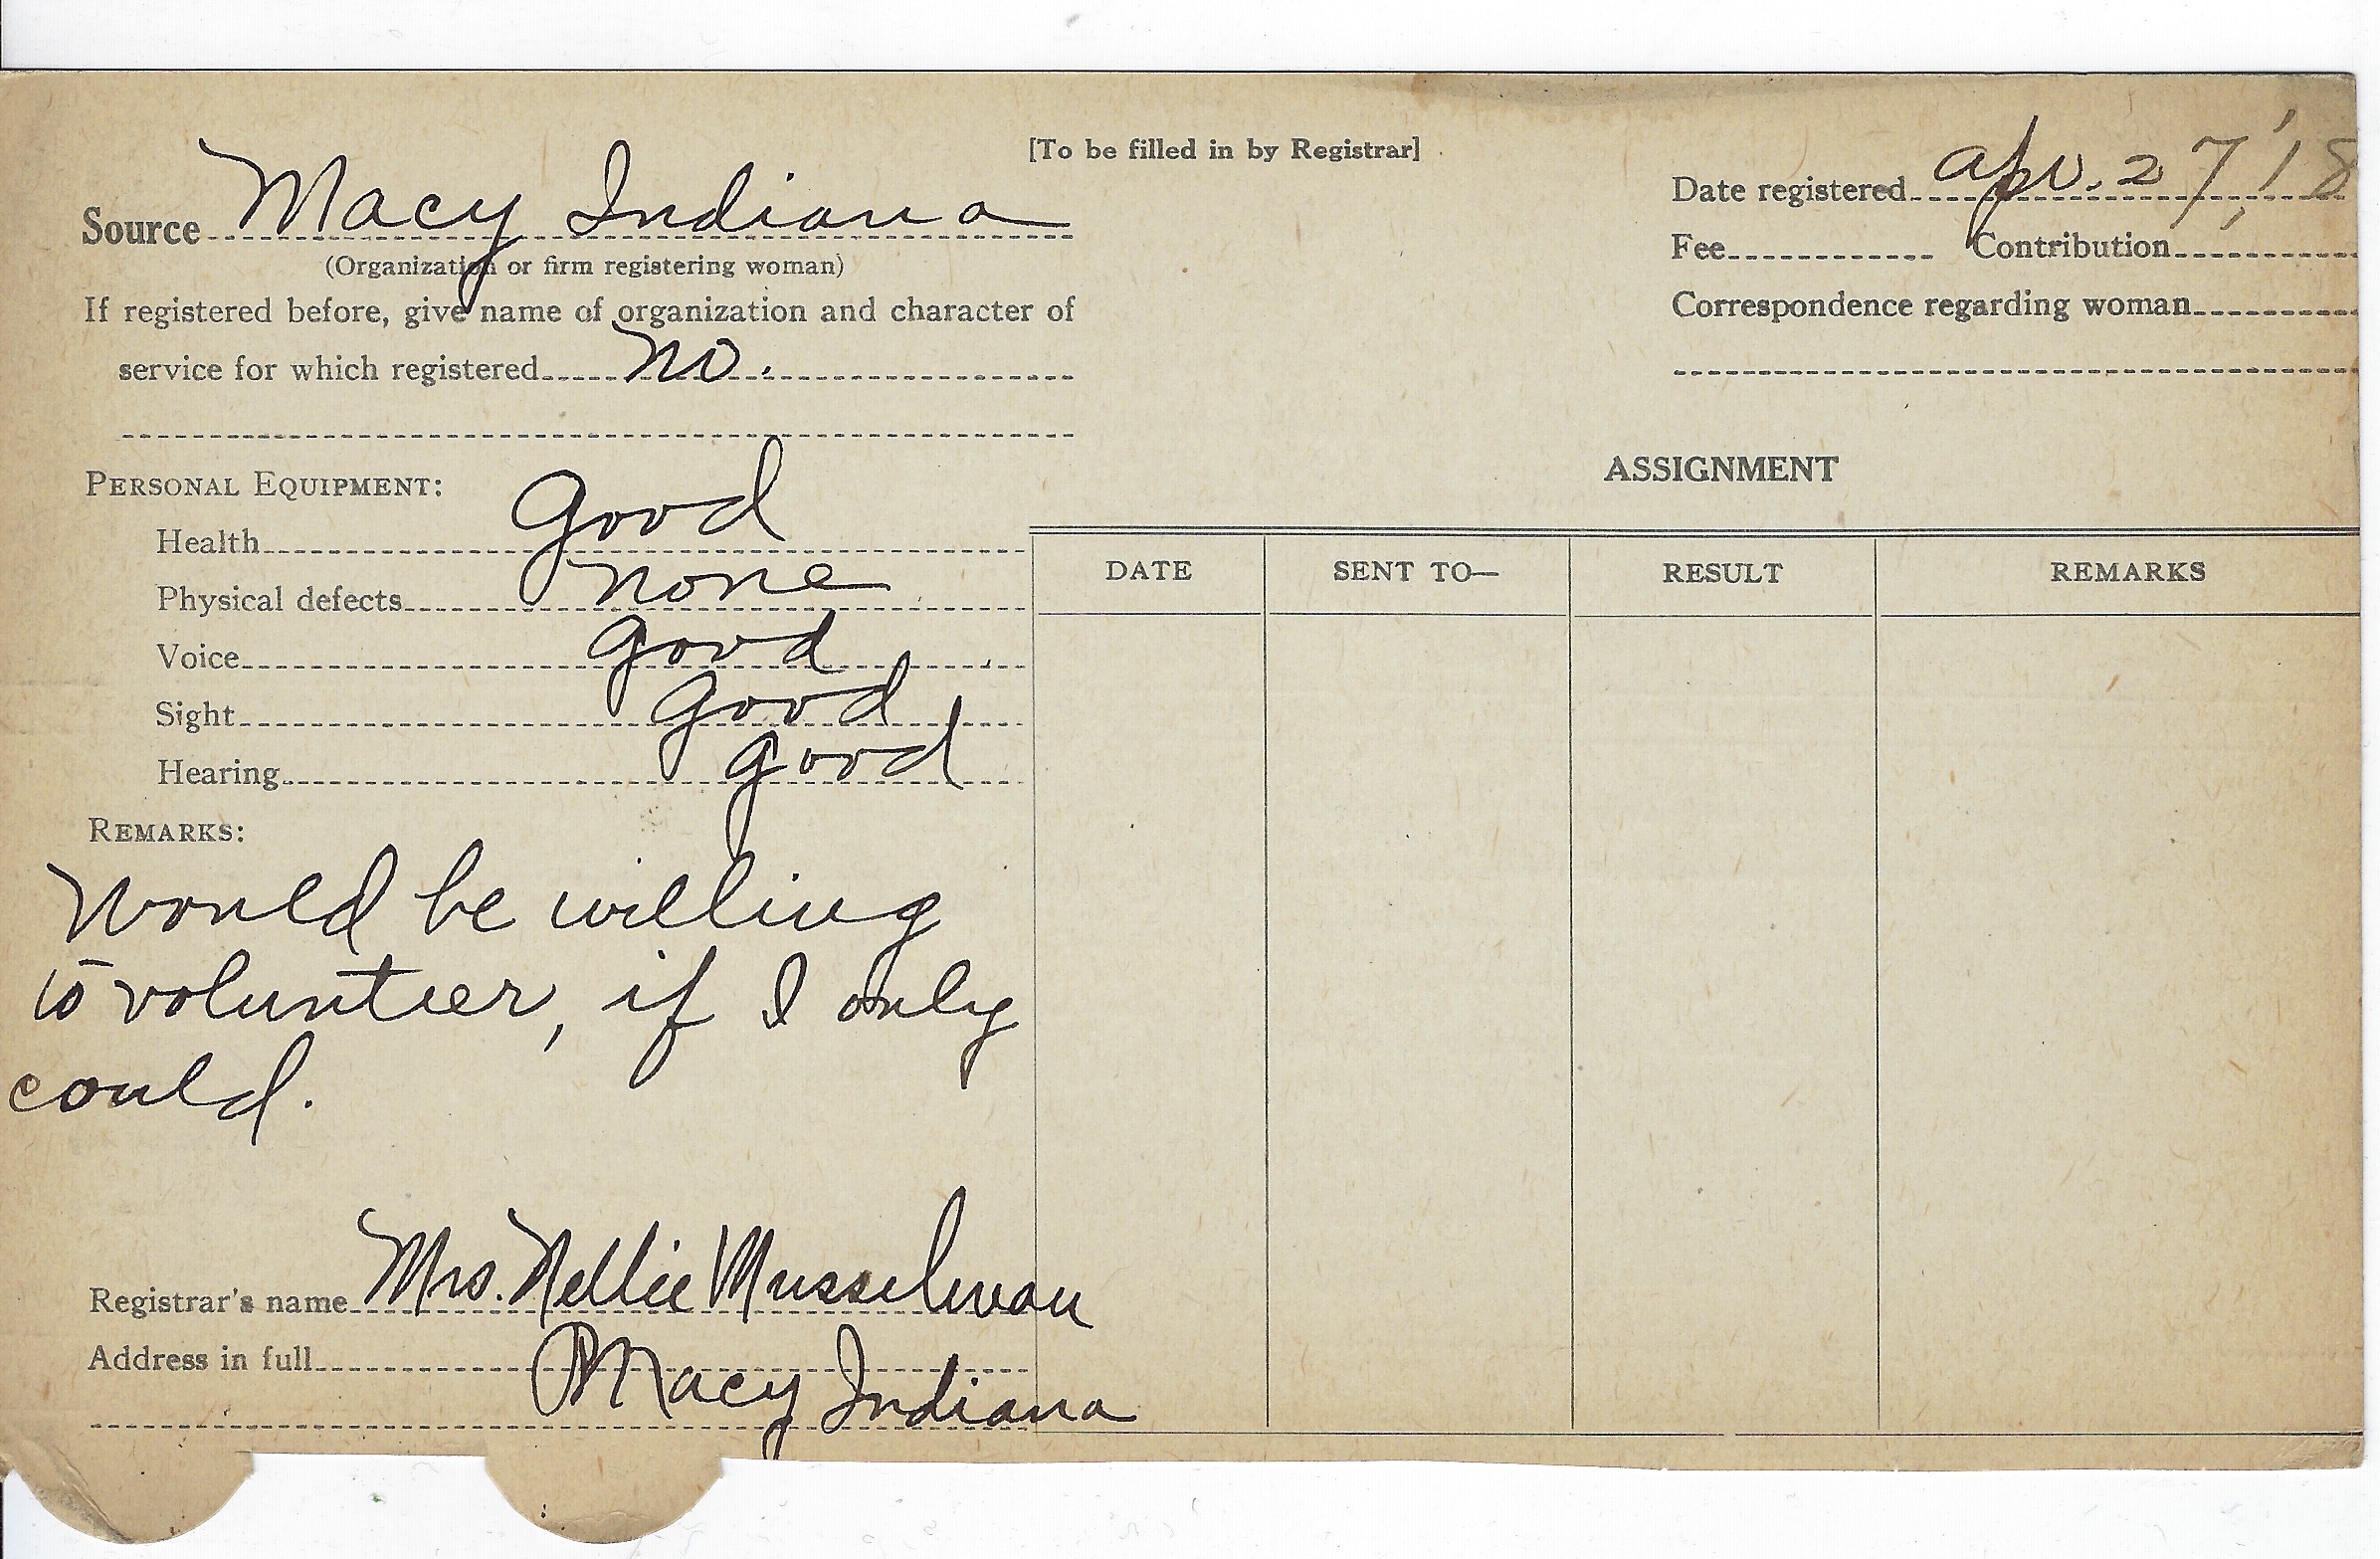 [To be filled in by Registrar]
Source Macy Indiana
(Organization or firm registering woman)
If registered before, give name of organization and character of
service for which registered No.
Date registered Apr. 27, '18
Fee Contribution
Correspondence regarding woman
PERSONAL EQUIPMENT:
Health Good
Physical defects none
Voice Good
Sight Good
Hearing Good
REMARKS:
Would be willing
to volunteer, if I only
could.
Registrar's name Mrs. Nellie Musselman
Address in full Macy Indiana
ASSIGNMENT
DATE SENT TO— RESULT REMARKS